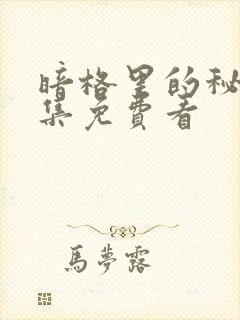 暗格里的秘
集免費看
馬夢露